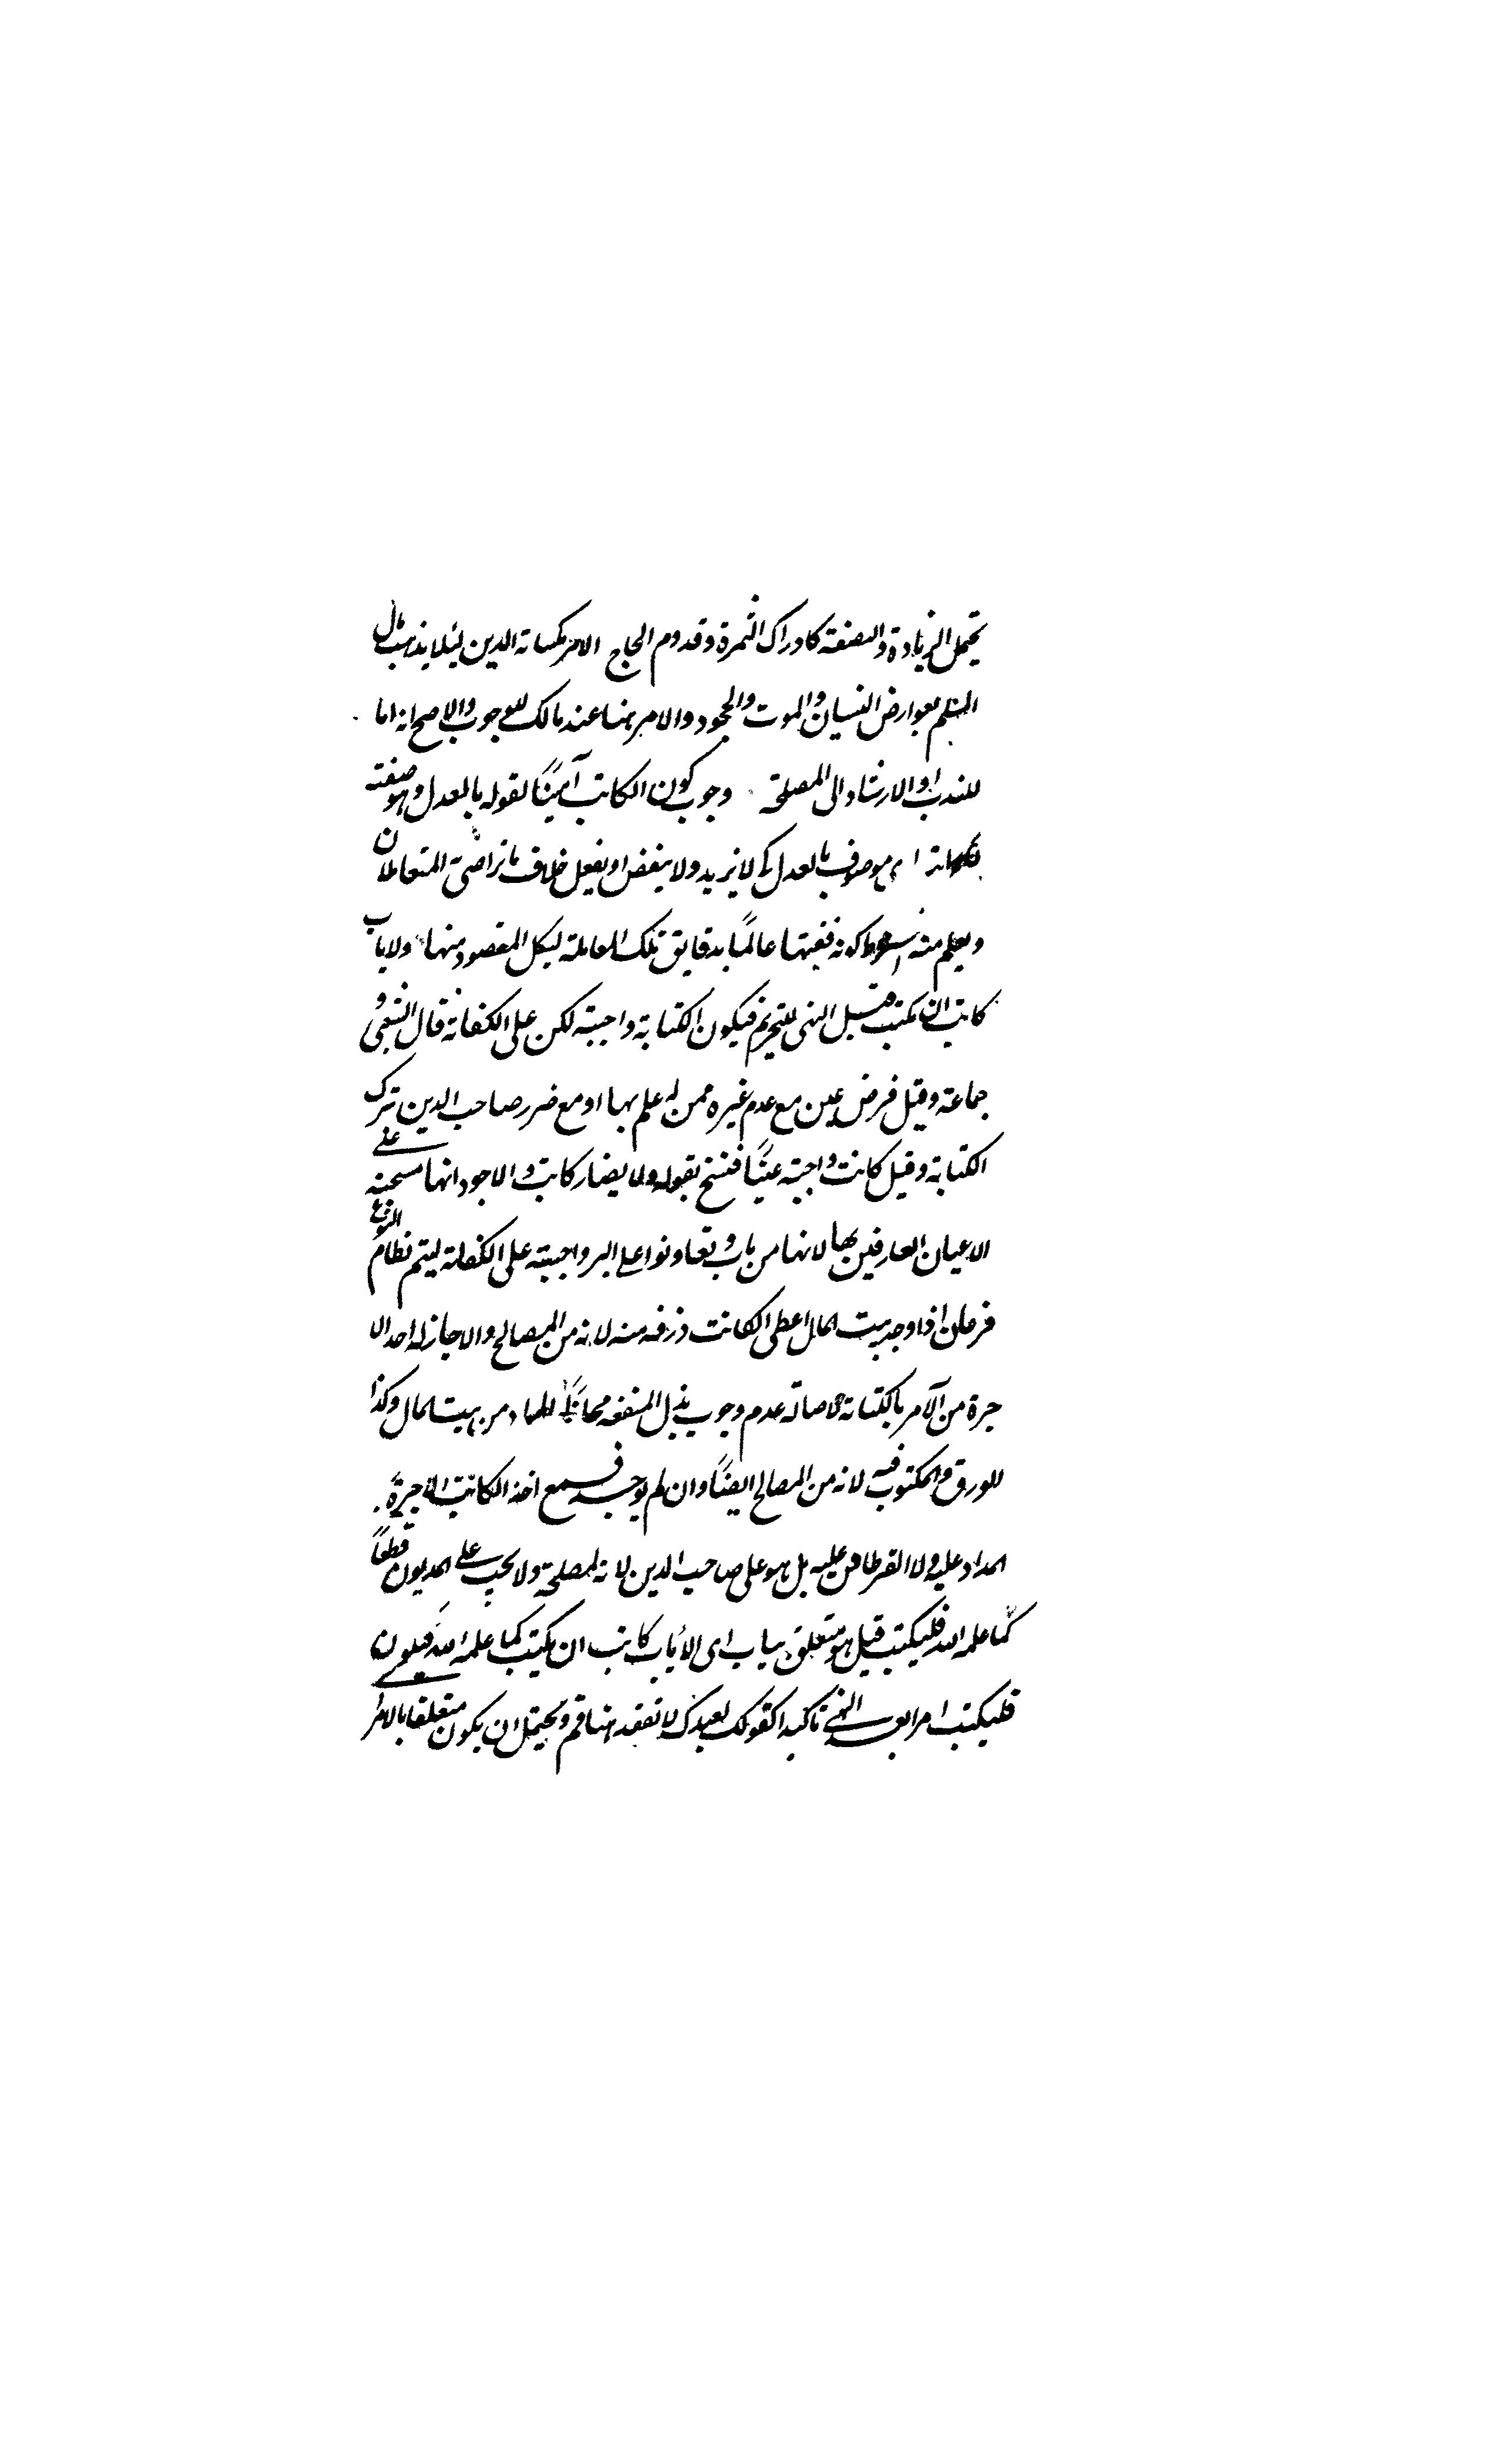 يحتمل الزيادة والنصفة كادراك الثمرة وقدوم الحاج الامر بكتابة الدين لئلا يذهب مال
المسلم بعوارض النسيان والموت والجحود والامر هنا عند مالك للوجوب والاصح انه اما
للندب او الارشاد الى المصلحة وجوب كون الكاتب آمينًا لقوله بالعدل وهو صفته
اى موصوف بالعدل كى لا يزيد ولا ينقص او يفعل خلاف ما تراضى المتعاملان
ويعلم منه كونه فقيها عالمًا بدقايق تلك المعاملة ليكل المقصود منها ولا ياب
كاتب ان يكتب قيل النهى للتحريم فيكون الكتابة واجبته لكن على الكفاية قال الشعبى و
جماعة وقيل فرض عين مع عدم غيره ممن له علم بها او مع ضرر صاحب الدين بترك
الكتابة وقيل كانت واجبته عينًا فنسخ بقوله ولا يضار كاتب والاجود انها مستحبة على
الاعيان العارفين بها لانها من باب وتعاونوا على البر واجبته على الكفاية ليتم نظام النوع
فرعان اذا وجد بيت المال اعطى الكاتب رزقه منه لانه من المصالح والا جاز له اخذ الا
جرة من الآمر بالكتابة لاصالة عدم وجوب بذل المنفعه مجانًا المداد من بيت المال وكذا
للورق والمكتوب فيه لانه من المصالح ايضًا وان لم يوجد فمع اخذ الكاتب الاجرة
المداد عليه ولا القرطاس عليه بل هو على صاحب الدين لانه لمصلحته ولا يجب على المديون قطعًا
كما علمه الله فليكتب قيل هو متعلق بياب اى لا ياب كاتب ان يكتب كما علمه الله فيكون
فليكتب امرا بعد النهى تاكيدا كقولك لعبدك لا تقعد هنا قم ويحتمل ان يكون متعلقا بالامر